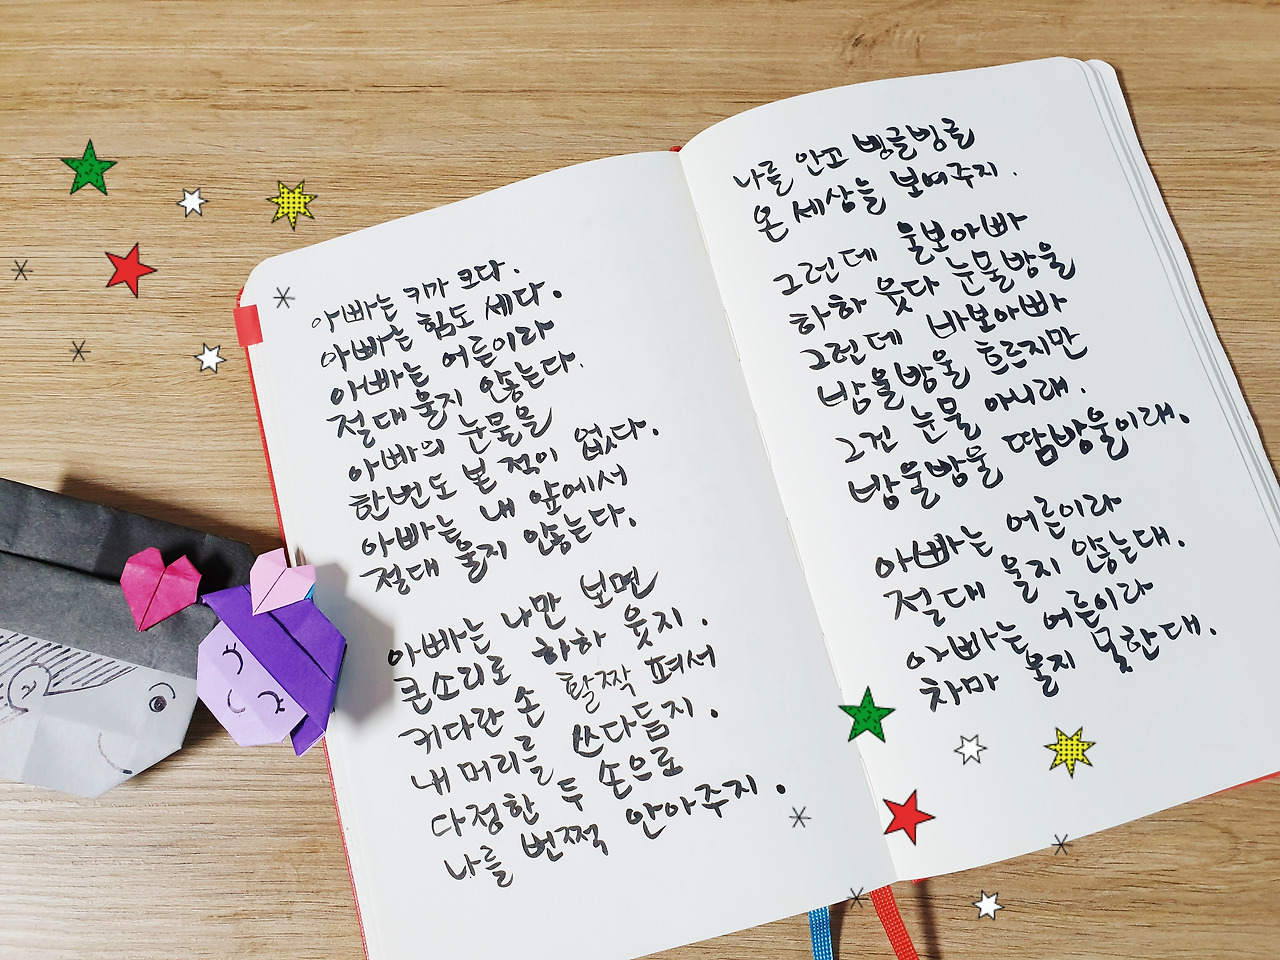 아빠는 키가 크다.
아빠는 힘도 세다.
아빠는 어른이라
절대 울지 않는다.
아빠의 눈물을
한번도 본 적이 없다.
아빠는 내 앞에서
절대 울지 않는다.
아빠는 나만 보면
큰소리로 하하 웃지.
커다란 손 활짝 펴서
내 머리를 쓰다듬지.
다정한 두 손으로
나를 번쩍 안아주지.
나를 안고 빙글빙글
온 세상을 보여주지.
그런데 울보아빠
하하 웃다 눈물방울
그런데 바보아빠
방울방울 흐르지만
그건 눈물 아니래.
방울방울 땀방울이래.
아빠는 어른이라
절대 울지 않는대.
아빠는 어른이라
차마 울지 못한대.